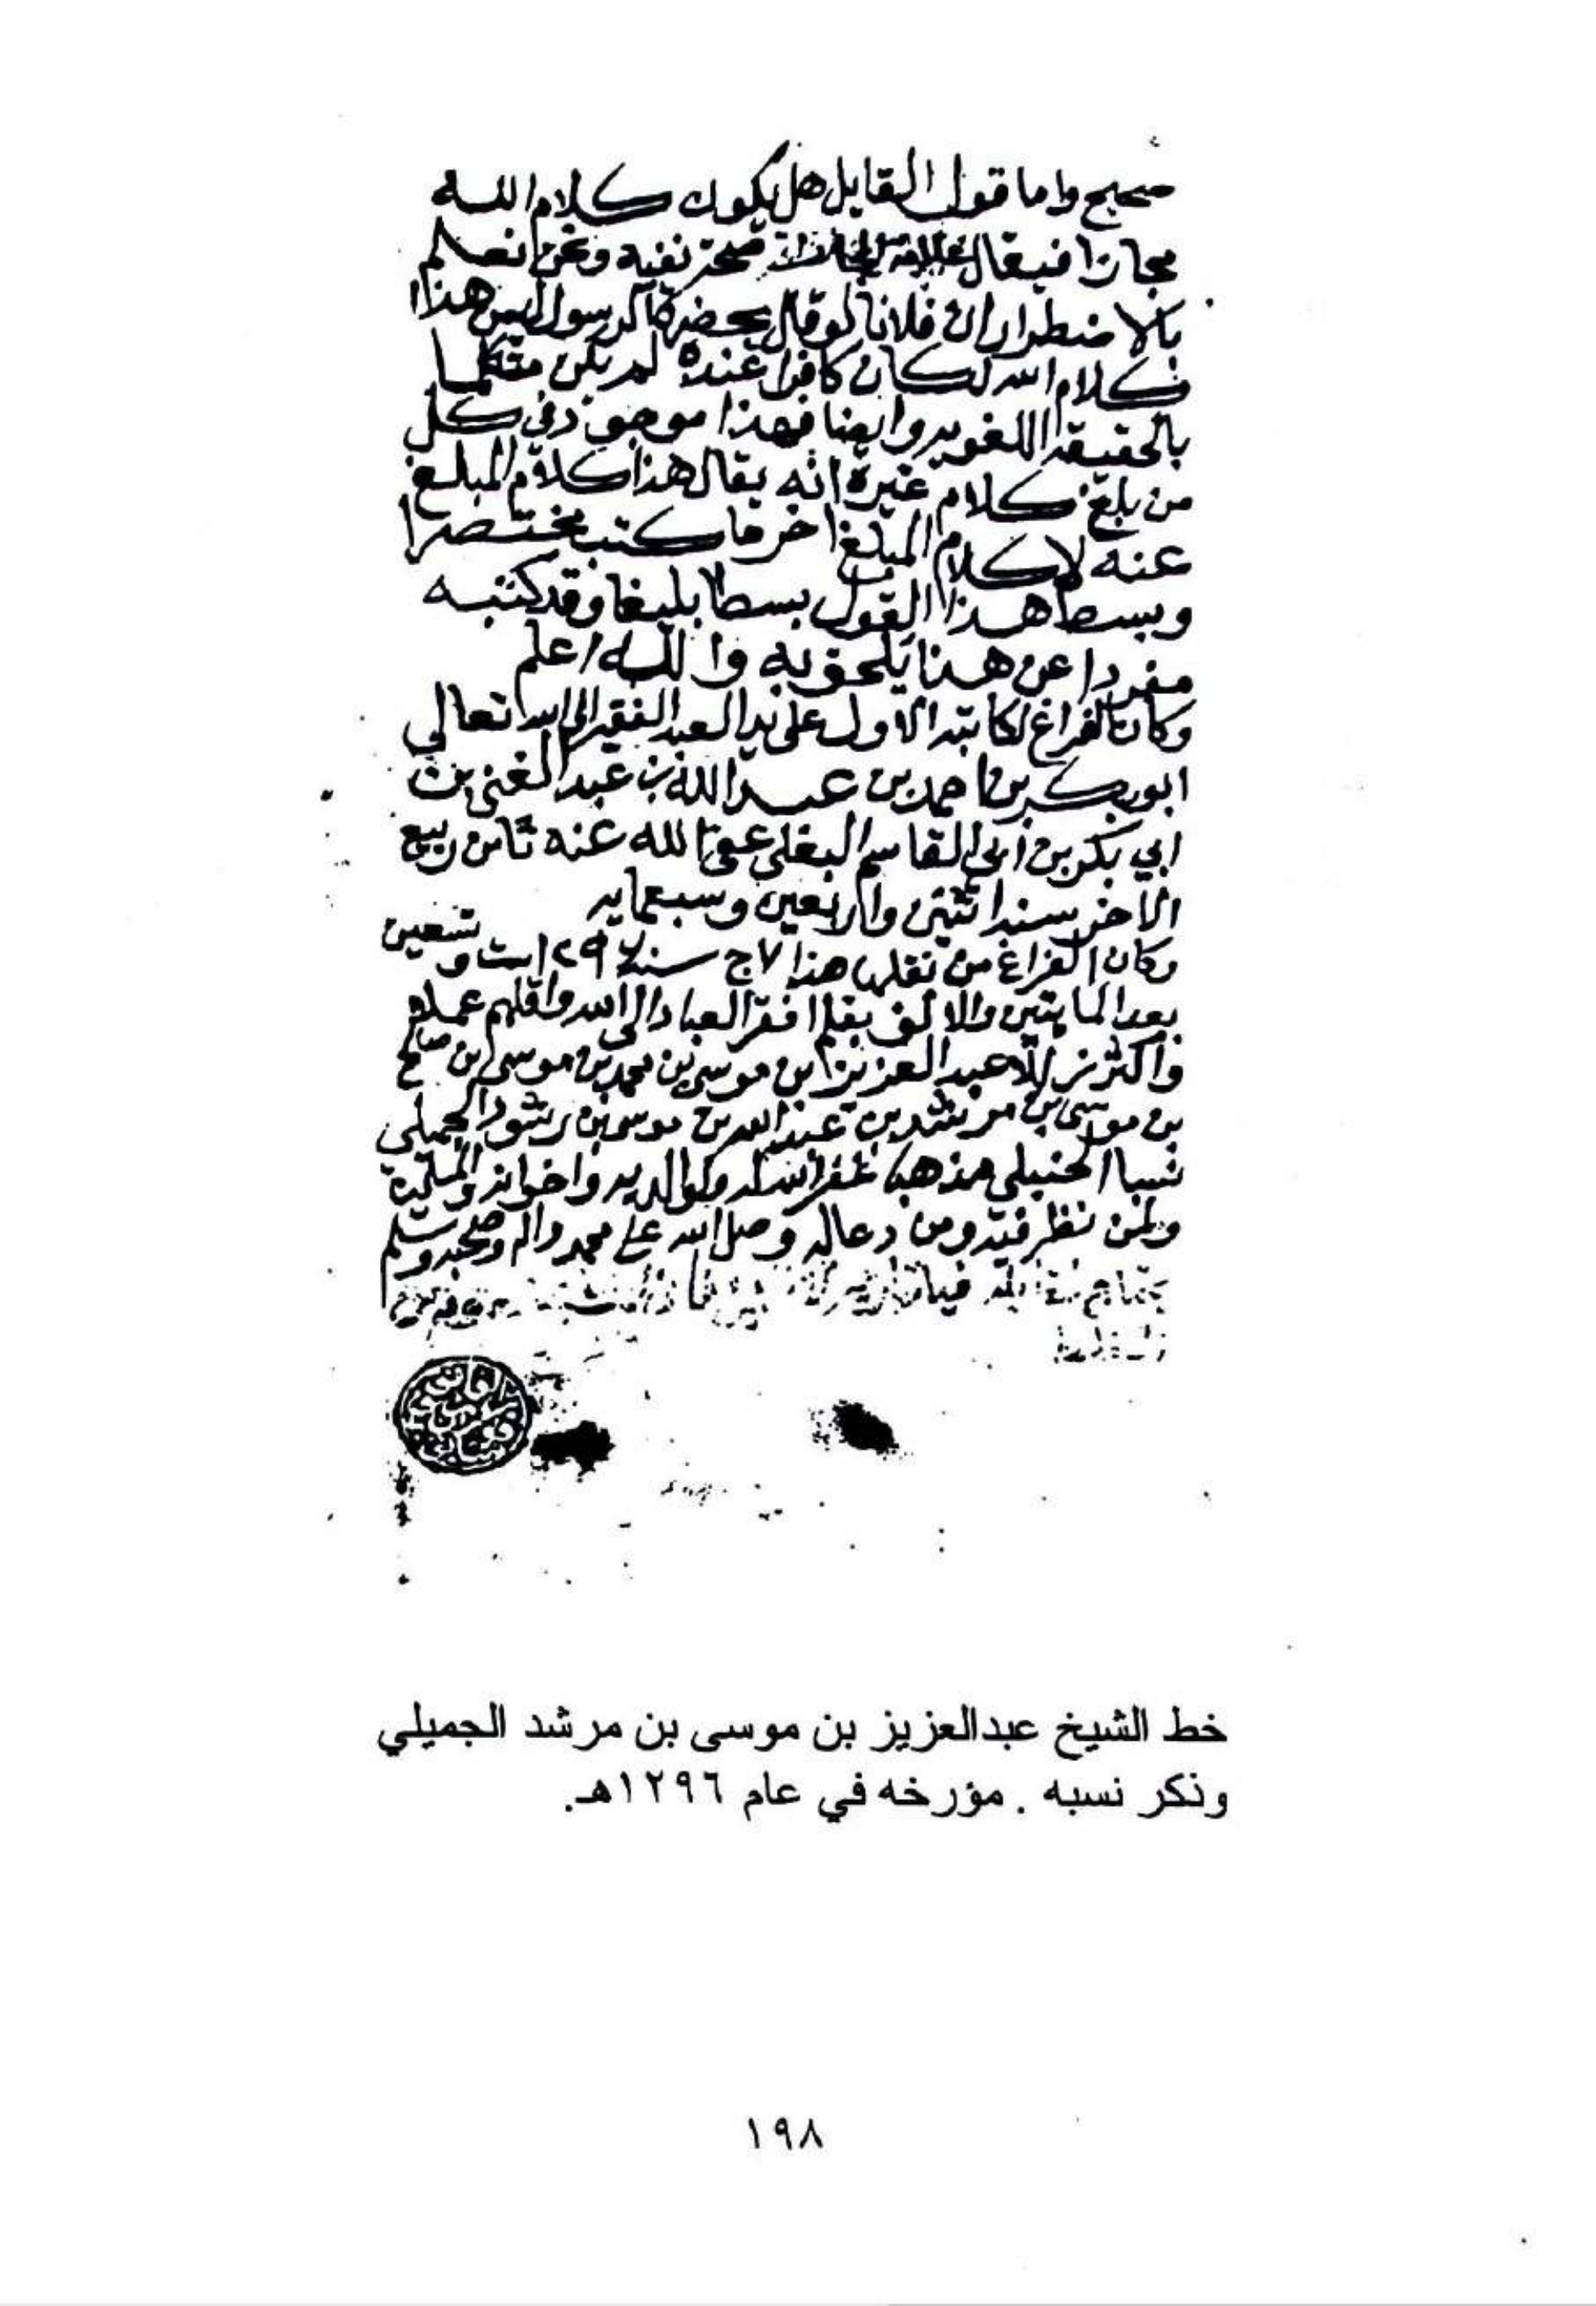 صحيح واما قول القايل هل يكون كلام الله
مجازا فيقال علامة المجاز صحة نفيه ونحن نعلم
بالاضطرار ان فلانا لو قال بحضرة الرسول ليس هذا
كلام الله لكان كافرا عنده لم يكن متكلما
بالحقيقة اللغويه وايضا فهذا موجود في كل
من بلغ كلام غيره انه يقال هذا كلام المبلغ
عنه لا كلام المبلغ اخر ما كتب مختصرا
وبسط هذا القول بسطا بليغا وقد كتبه
مفردا عن هنا يلحق به والله اعلم
وكان الفراغ لكاتبه الاول على يد العبد الفقير الى الله تعالى
ابو بكر بن احمد بن عبد الله بن عبد الغني بن
ابي بكر بن ابي القاسم البعلي عفى الله عنه ثامن ربيع
الاخر سنة اثنتين واربعين وسبعمايه
وكان الفراغ من نقلها هذا ٧ ج سنة ١٢٩٦ ست وتسعين
بعد المايتين والالف بقلم افقر العباد الى الله واقلهم عملا
واكثرهم زللا عبد العزيز ابن موسى بن محمد بن موسى بن صالح
بن موسى بن مرشد بن عبد الله بن موسى بن رشود الجميلي
نسبا الحنبلي مذهبا غفر الله له ولوالديه واخوانه والمسلمين
ولمن نظر فيه ومن دعا له وصل الله على محمد واله وصحبه وسلم
خط الشيخ عبدالعزيز بن موسى بن مرشد الجميلي
وذكر نسبه . مؤرخه في عام ١٢٩٦هـ.
١٩٨